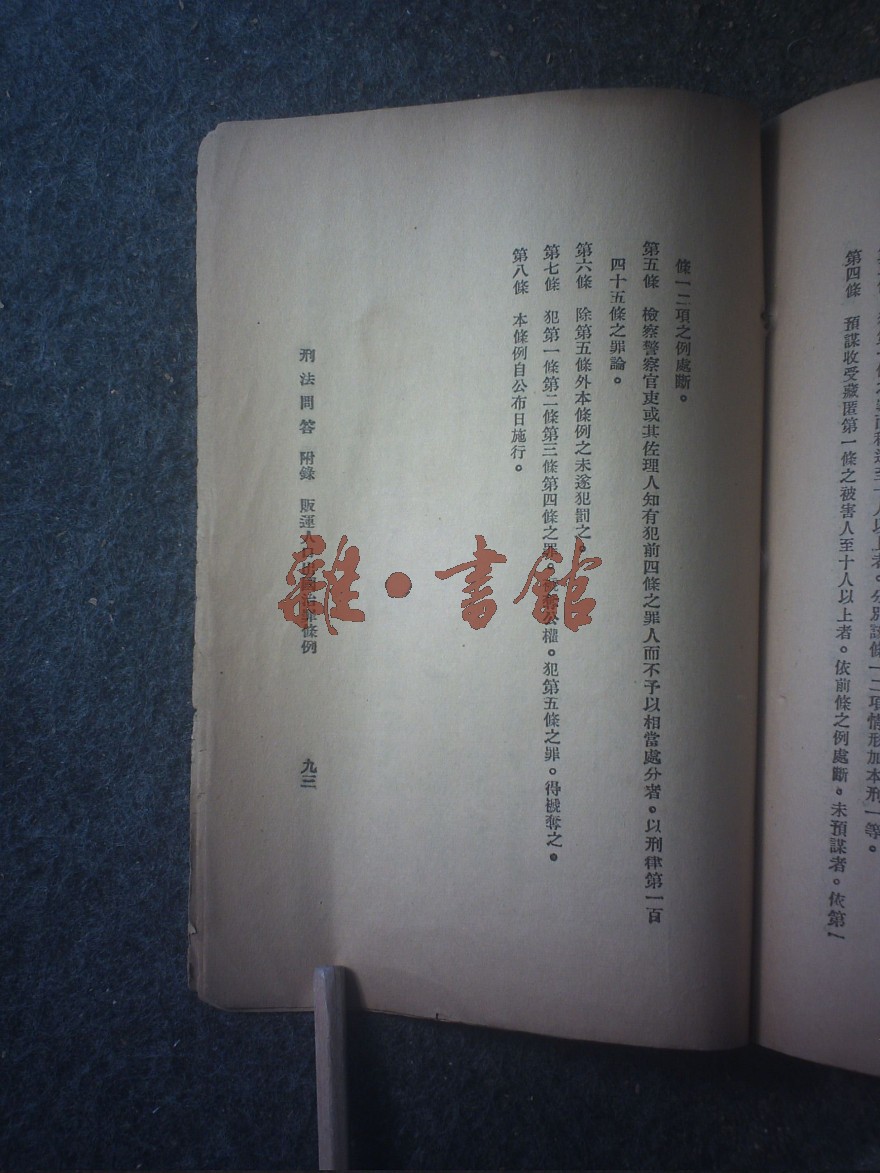 第四條　預謀收受藏匿第一條之被害人至十人以上者。依前條之例處斷。未預謀者。依第一
條一二項之例處斷。
第五條　檢察警察官吏或其佐理人知有犯前四條之罪人而不予以相當處分者。以刑律第一百
四十五條之罪論。
第六條　除第五條外本條例之未遂犯罰之。
第七條　犯第一條第二條第三條第四條之罪。公權。犯第五條之罪。得褫奪之。
第八條　本條例自公布日施行。
刑法問答　附錄　販運人口出國治罪條例　九三
雜·書館